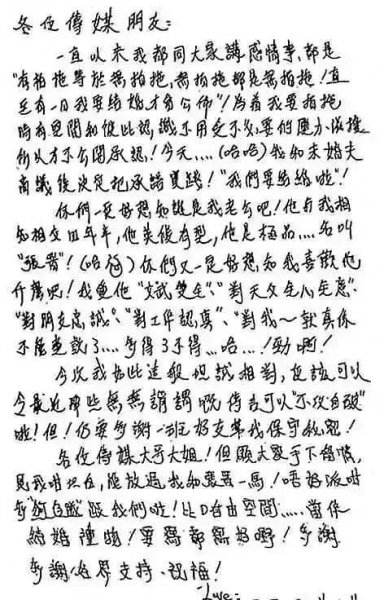 各位傳媒朋友：
一直以來我都同大家講感情事，都是
"有拍拖等於無拍拖，無拍拖都是無拍拖！直
至有一日我要結婚才會公佈"！為着我要拍拖
時有空間和彼此認識不用受不必要的壓力
所以才不公開承認！今天....(哈哈)我和未婚夫
商議後決定把承諾實踐！"我們要結婚啦"！
你們一定好想知誰是我老公吧！他與我相
知相交四年半，他英俊有型，他是極品....名叫
"張晋"！(哈哈)你們又一定好想知我喜歡他
什麼吧！我愛他"文武雙全"、"對天父全心全意"
"對朋友忠誠"、"對工作認真"、"對我～就真係
不能盡說了....多得3不得...哈...！勁啊！
今次我如此這般坦誠相對，應該可以
令最近那些無無謂謂嘅傳言可以"不攻自破"
啦！但！仍要多謝一班好友幫我保守秘密！
各位傳媒大哥大姐！但願大家手下留情，
見我咁坦白，應放過我和張晋一馬！唔好派咁
多"狗仔隊"跟我們啦！比D自由空間.....當係
結婚禮物！要寫都寫好嘢！多謝
多謝各界支持、祝福！
Love: